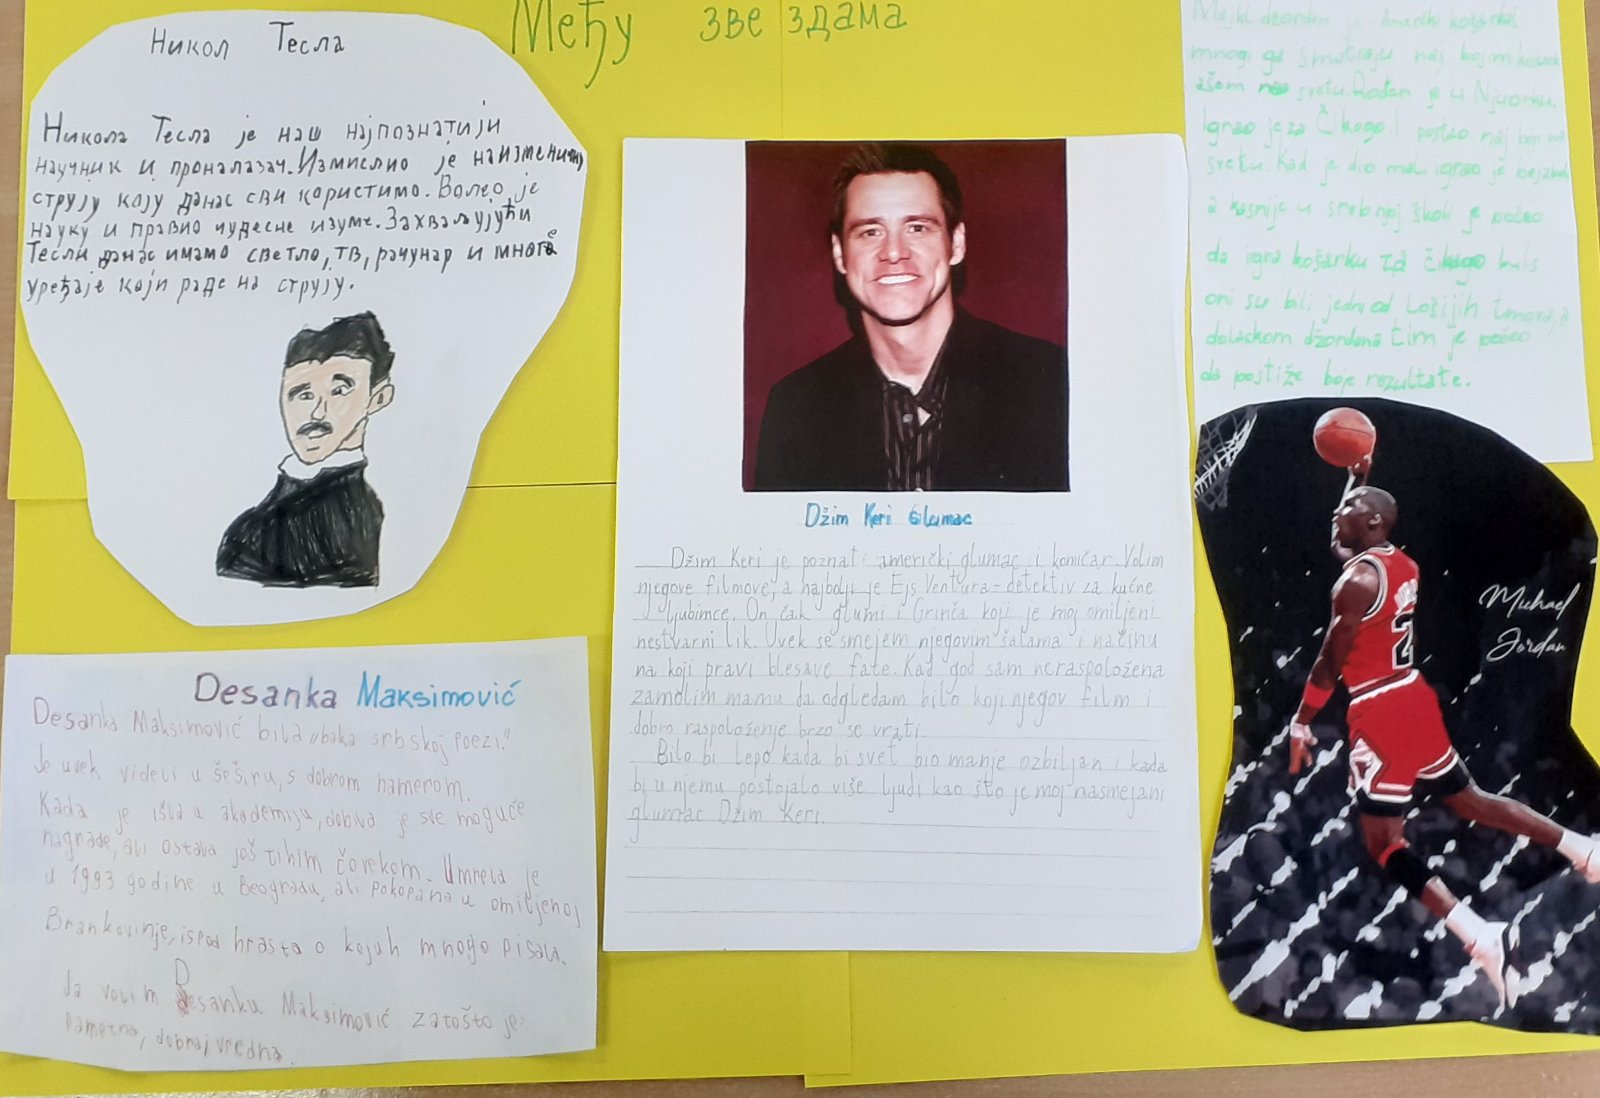 Међу звездама
Никол Тесла
Никола Тесла је наш најпознатији
научник и проналазач. Измислио је наизменичну
струју коју данас сви користимо. Волео је
науку и правио чудесне изуме. Захваљујући
Тесли данас имамо светло, тв, рачунар и многе
уређаје који раде на струју.
Desanka Maksimović
Desanka Maksimović bila „baka srbskoj poezi."
Je uvek videli u šeširu, s dobrom namerom.
Kada je išla u akademiju, dobila je sve moguće
nagrade, ali ostala još tihim čovekom. Umrela je
u 1993 godine u Beogradu, ali pokopana u omiljenoj
Brankovinje, ispod hrasta o kojuh mnogo pisala.
Ja volim Desanku Maksimović zatošto je:
pametna, dobra, vredna.
Džim Keri Glumac
Džim Keri je poznati američki glumac i komičar. Volim
njegove filmove, a najbolji je Ejs Ventura-detektiv za kućne
ljubimce. On čak glumi i Grinča koji je moj omiljeni
nestvarni lik. Uvek se smejem njegovim šalama i načinu
na koji pravi blesave face. Kad god sam neraspoložena
zamolim mamu da odgledam bilo koji njegov film i
dobro raspoloženje brzo se vrati.
Bilo bi lepo kada bi svet bio manje ozbiljan i kada
bi u njemu postojalo više ljudi kao što je moj nasmejani
glumac Džim Keri.
Majkl džordan je Američki košarkaš
mnogi ga smatraju naj bojim košark
ašem na svetu. Rođen je u Njuorku.
Igrao je za Čikago I postao naj boi na
svetu. Kad je bio mali igrao je bejzbol
a kasnije u srebnjoj školi je počeo
da igra košarku za čikago buls
oni su bili jedni od Lošijih timova, a
dolaskom džordana tim je počeo
da postiže boje rezultate.
Michael
Jordan
2